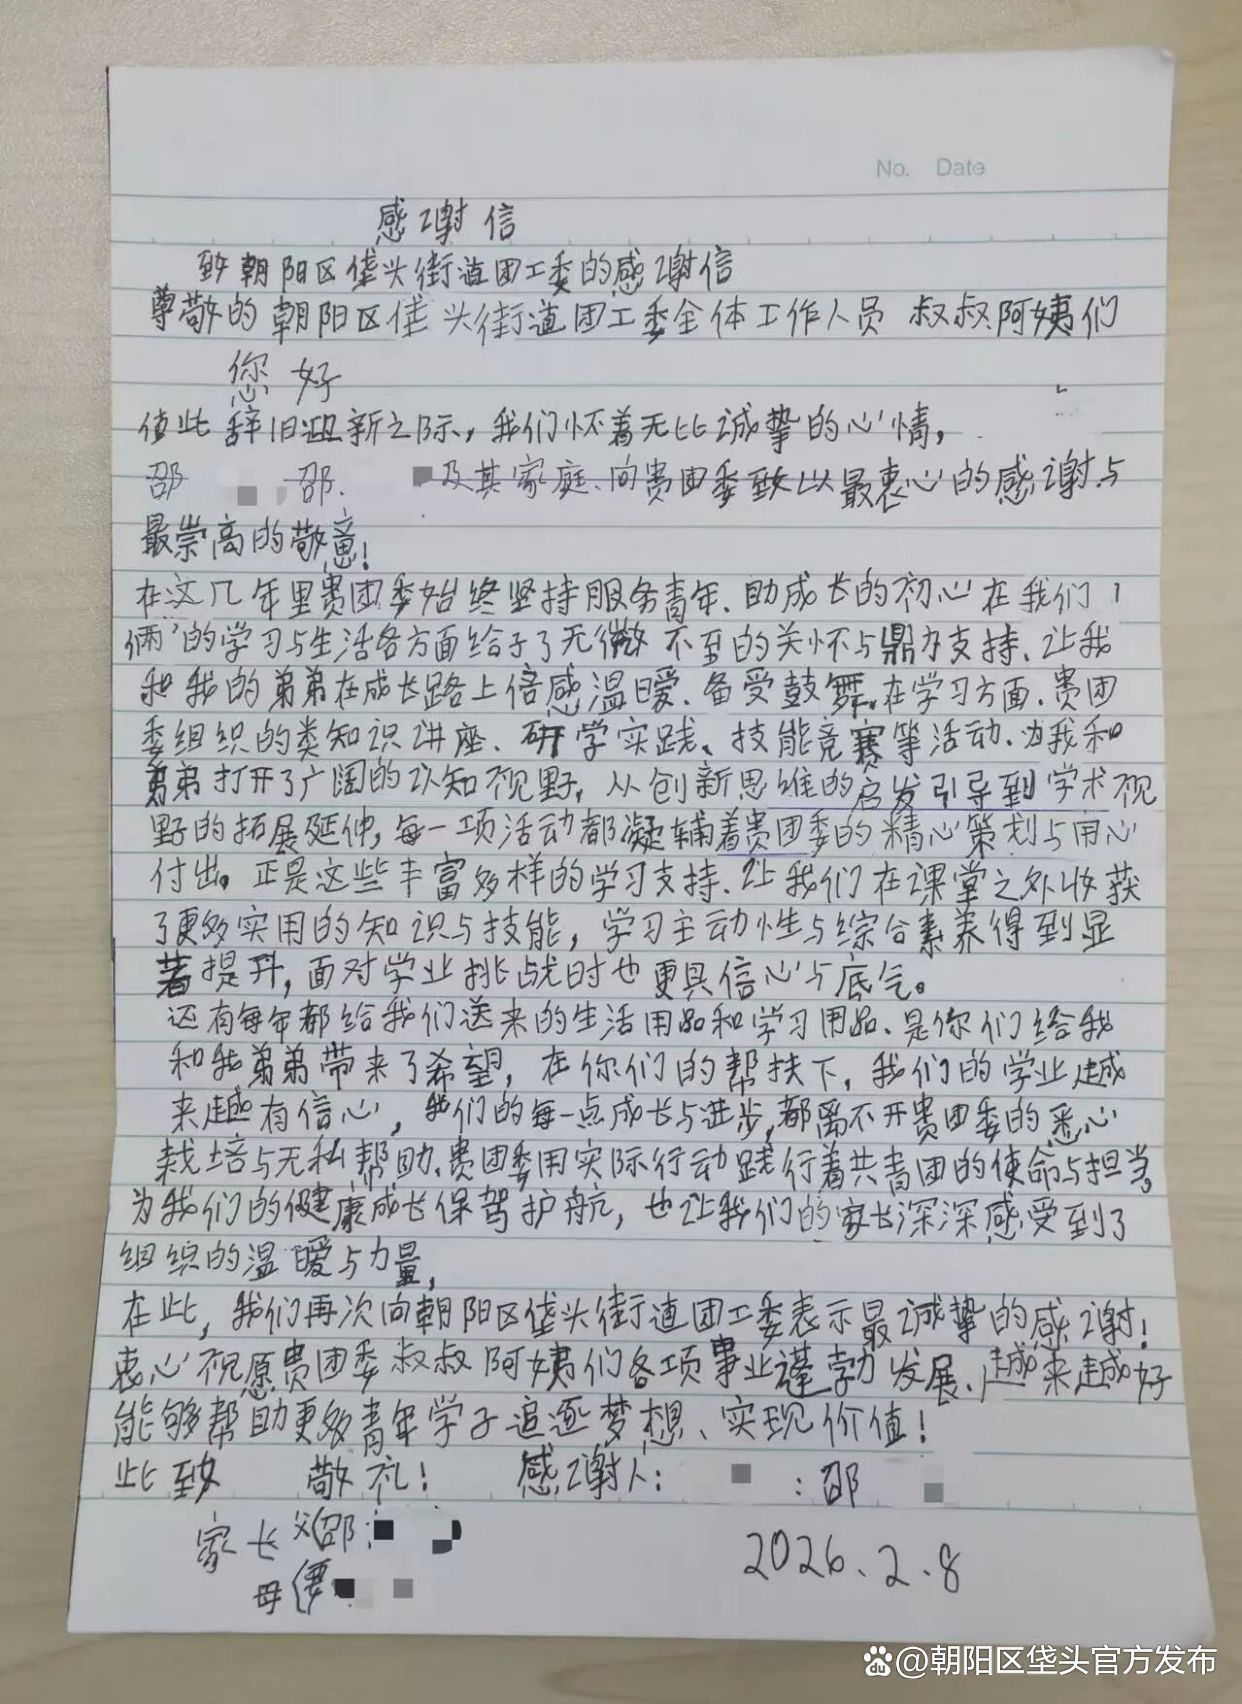 No. Date
感谢信
致朝阳区垡头街道团工委的感谢信
尊敬的朝阳区垡头街道团工委全体工作人员 叔叔阿姨们
您好
值此辞旧迎新之际，我们怀着无比诚挚的心情，
邵 邵. 及其家庭、向贵团委致以最衷心的感谢与
最崇高的敬意！
在这几年里贵团委始终坚持服务青年、助成长的初心在我们
俩的学习与生活各方面给予了无微不至的关怀与鼎力支持、让我
和我的弟弟在成长路上倍感温暖、备受鼓舞，在学习方面、贵团
委组织的类知识讲座、研学实践、技能竞赛等活动、为我和
弟弟打开了广阔的认知视野，从创新思维的启发引导到学术视
野的拓展延伸，每一项活动都凝辅着贵团委的精心策划与用心
付出。正是这些丰富多样的学习支持、让我们在课堂之外收获
了更多实用的知识与技能，学习主动性与综合素养得到显
著提升，面对学业挑战时也更具信心与底气。
还有每年都给我们送来的生活用品和学习用品、是你们给我
和我弟弟带来了希望，在你们的帮扶下，我们的学业越
来越有信心，我们的每一点成长与进步，都离不开贵团委的悉心
栽培与无私帮助、贵团委用实际行动践行着共青团的使命与担当，
为我们的健康成长保驾护航，也让我们的家长深深感受到了
组织的温暖与力量，
在此，我们再次向朝阳区垡头街道团工委表示最诚挚的感谢！
衷心祝愿贵团委叔叔阿姨们各项事业蓬勃发展、越来越好
能够帮助更多青年学子追逐梦想、实现价值！
此致 敬礼！ 感谢人： ：邵
家长 父邵：
母
2026.2.8
@朝阳区垡头官方发布